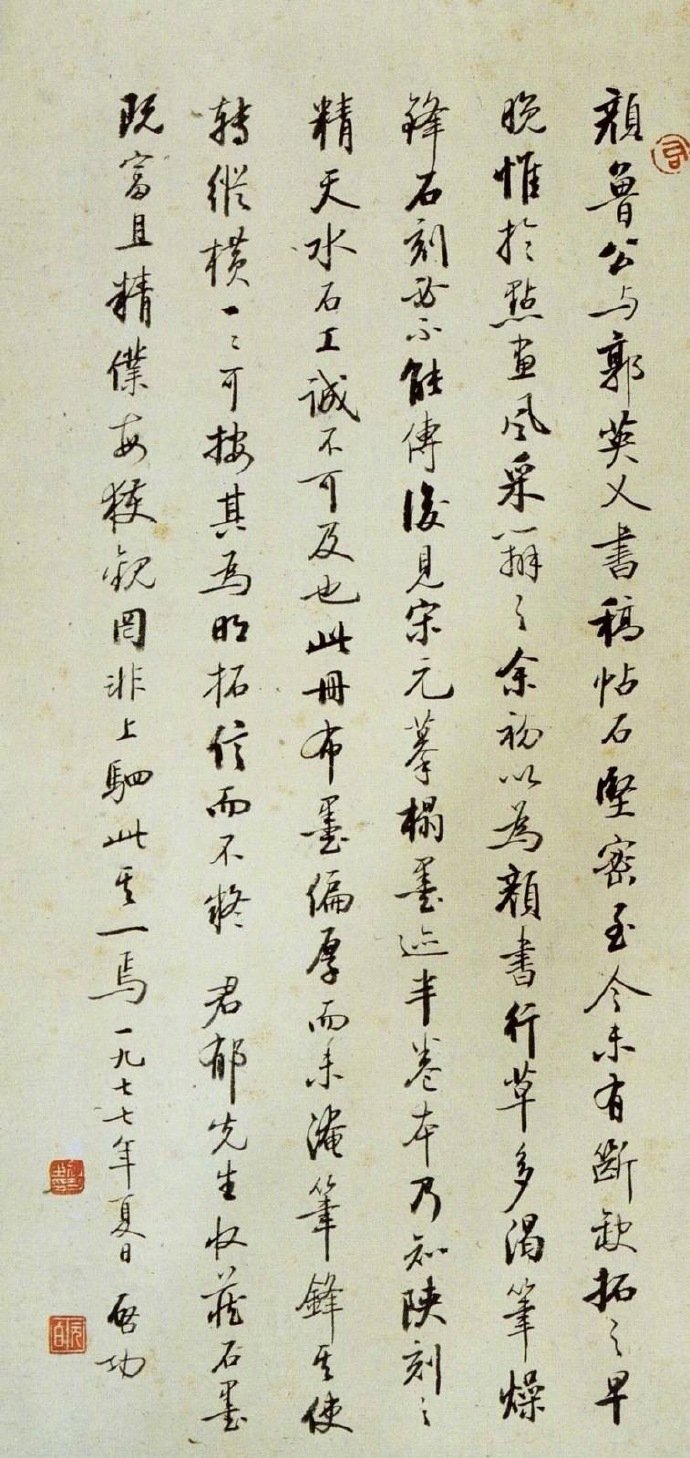 颜鲁公与郭英乂书稿帖石坚密至今未有断缺拓之早
晚惟於點畫风采辨之余初以為顔書行草多渴筆燥
鋒石刻势不能傳後見宋元摹榻墨迹半卷本乃知陕刻之
精天水石工诚不可及也此冊布墨偏厚而未淹筆鋒其使
轉縱横一一可按其为明拓信而不疑 君郁先生收藏石墨
既富且精僕每獲觀罔非上駟此其一焉一九七七年夏日 启功